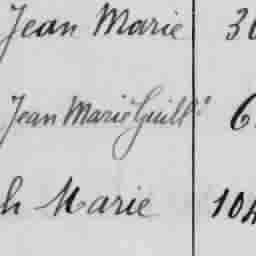 Jean Marie 30
Jean Marie Guill° 6
h Marie 104